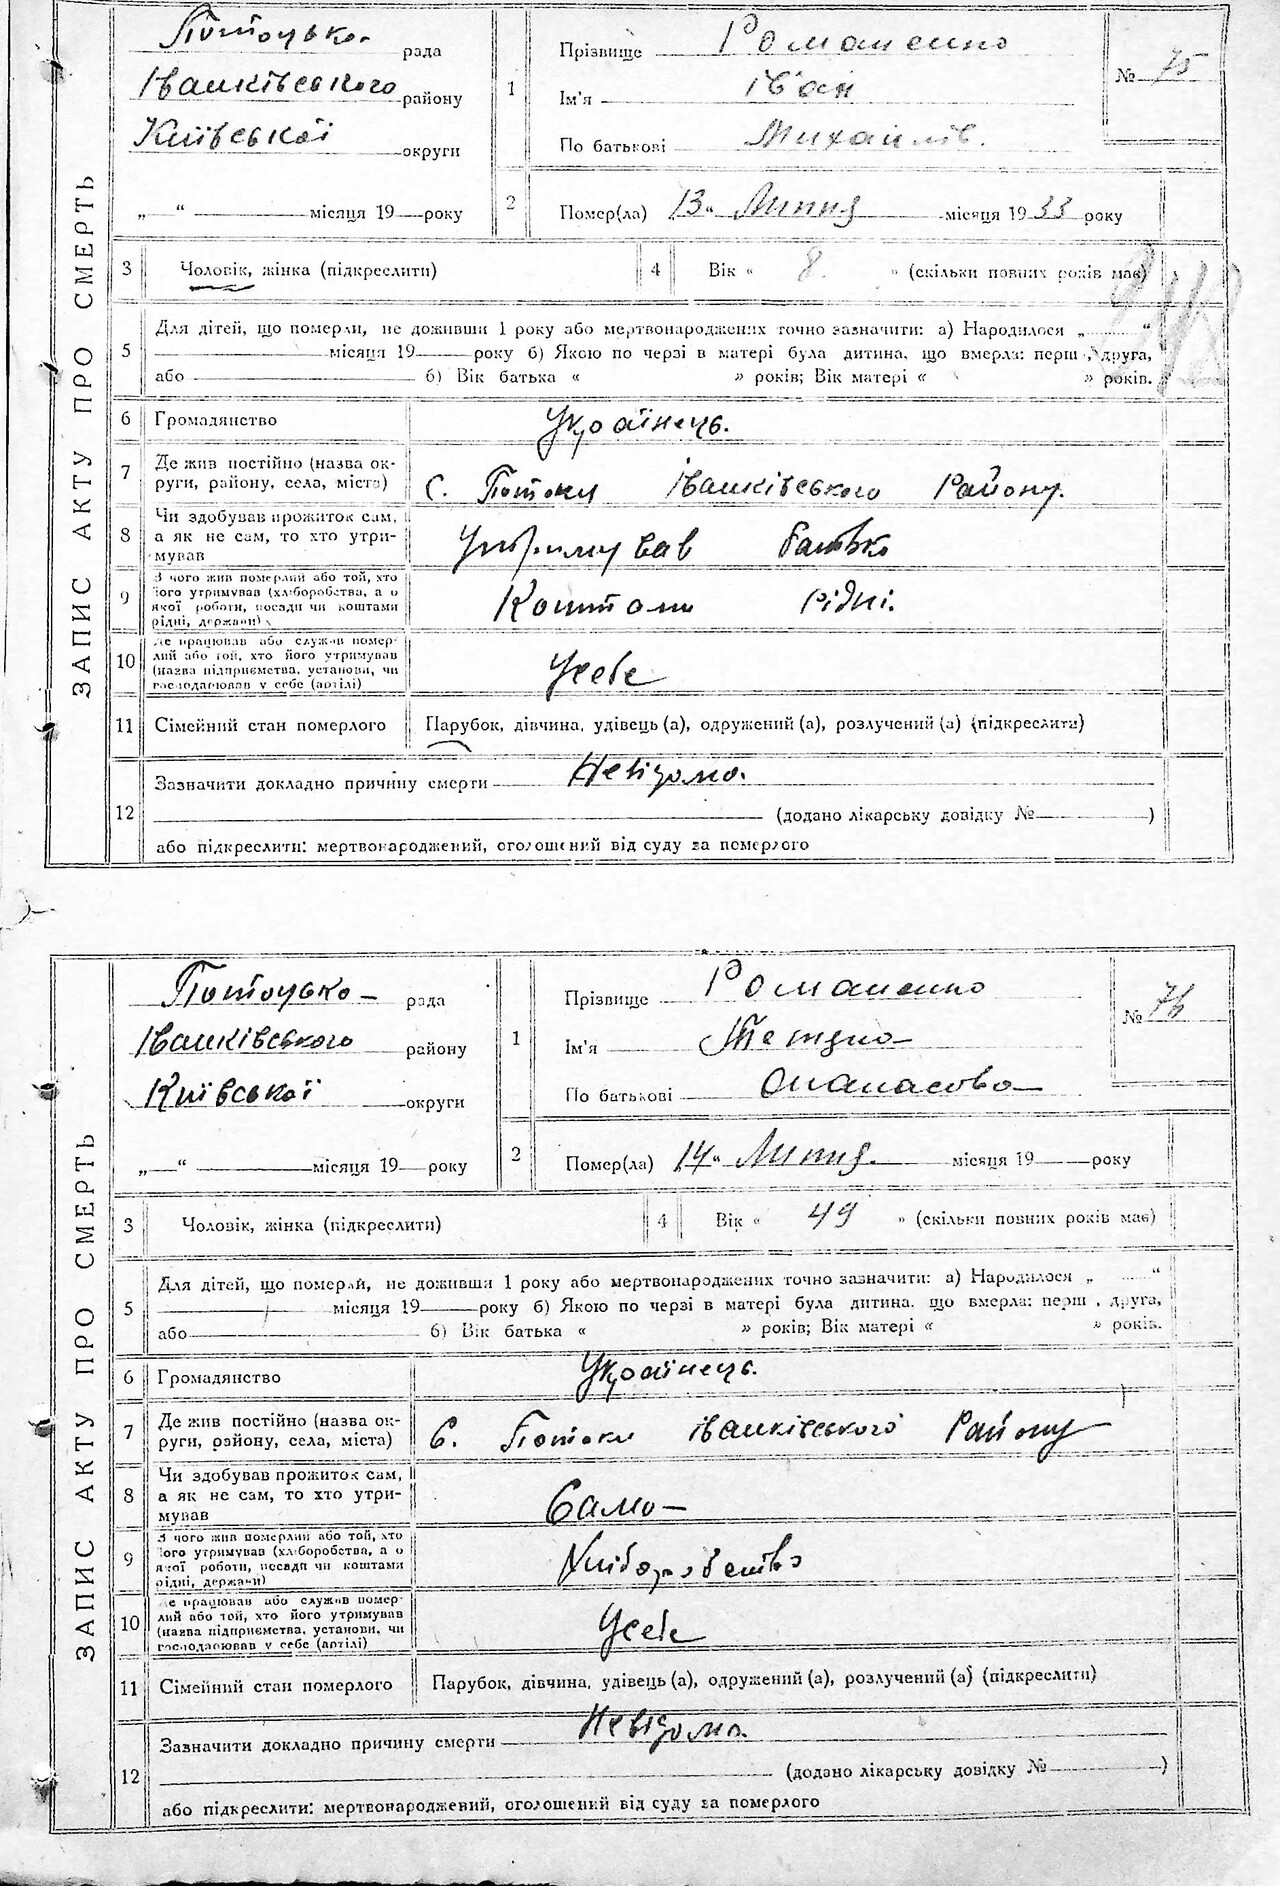 ЗАПИС АКТУ ПРО СМЕРТЬ
Потоцько- рада
Іванківського району
Київської округи
„ “ місяця 19 року
1
Прізвище Романенко
Ім'я Іван
По батькові Михайлів.
№ 75
2
Помер(ла) 13 „ Липня місяця 1933 року
3 Чоловік, жінка (підкреслити)
4 Вік « 8. » (скільки повних років має)
5
Для дітей, що померли, не доживши 1 року або мертвонароджених точно зазначити: а) Народилося „ “
місяця 19 року б) Якою по черзі в матері була дитина, що вмерла: перш , друга,
або б) Вік батька « » років; Вік матері « » років.
6 Громадянство Українець.
7 Де жив постійно (назва ок-
руги, району, села, міста) С. Потоки Іванківського Району.
8 Чи здобував прожиток сам,
а як не сам, то хто утри-
мував Утримував батько
9 З чого жив померлий або той, хто
його утримував (хліборобства, а о
якої роботи, посади чи коштами
рідні, держави) Коштом рідні.
10 Де працював або служив помер-
лий або той, хто його утримував
(назва підприємства, установи, чи
господарював у себе (артілі) Усебе
11 Сімейний стан померлого Парубок, дівчина, удівець (а), одружений (а), розлучений (а) (підкреслити)
12 Зазначити докладно причину смерти Невідома.
(додано лікарську довідку № )
або підкреслити: мертвонароджений, оголошений від суду за померлого
ЗАПИС АКТУ ПРО СМЕРТЬ
Потоцько- рада
Іванківського району
Київської округи
„ “ місяця 19 року
1
Прізвище Романенко
Ім'я Тетяна
По батькові Опанасова
№ 76
2
Помер(ла) 14 „ Липня. місяця 19 року
3 Чоловік, жінка (підкреслити)
4 Вік « 49 » (скільки повних років має)
5
Для дітей, що померли, не доживши 1 року або мертвонароджених точно зазначити: а) Народилося „ “
місяця 19 року б) Якою по черзі в матері була дитина, що вмерла: перш , друга,
або б) Вік батька « » років; Вік матері « » років.
6 Громадянство Українець.
7 Де жив постійно (назва ок-
руги, району, села, міста) С. Потоки Іванківського Району
8 Чи здобував прожиток сам,
а як не сам, то хто утри-
мував Сама
9 З чого жив померлий або той, хто
його утримував (хліборобства, а о
якої роботи, посади чи коштами
рідні, держави) Хліборобство
10 Де працював або служив помер-
лий або той, хто його утримував
(назва підприємства, установи, чи
господарював у себе (артілі) Усебе
11 Сімейний стан померлого Парубок, дівчина, удівець (а), одружений (а), розлучений (а) (підкреслити)
12 Зазначити докладно причину смерти Невідома.
(додано лікарську довідку № )
або підкреслити: мертвонароджений, оголошений від суду за померлого